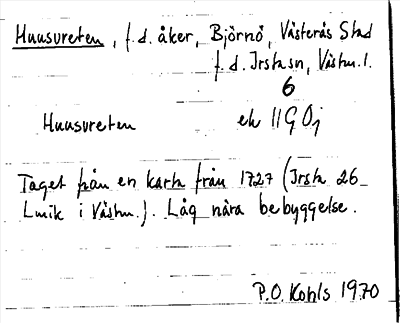 Huusvreten, f.d. åker, Björnö, Västerås Stad
f.d. Irsta sn, Västm.l.
6
Huusvreten ek 11G 0j
Taget från en karta från 1727 (Irsta 26
Lmtk i Västm.). Låg nära bebyggelse.
P.O. Kohls 1970